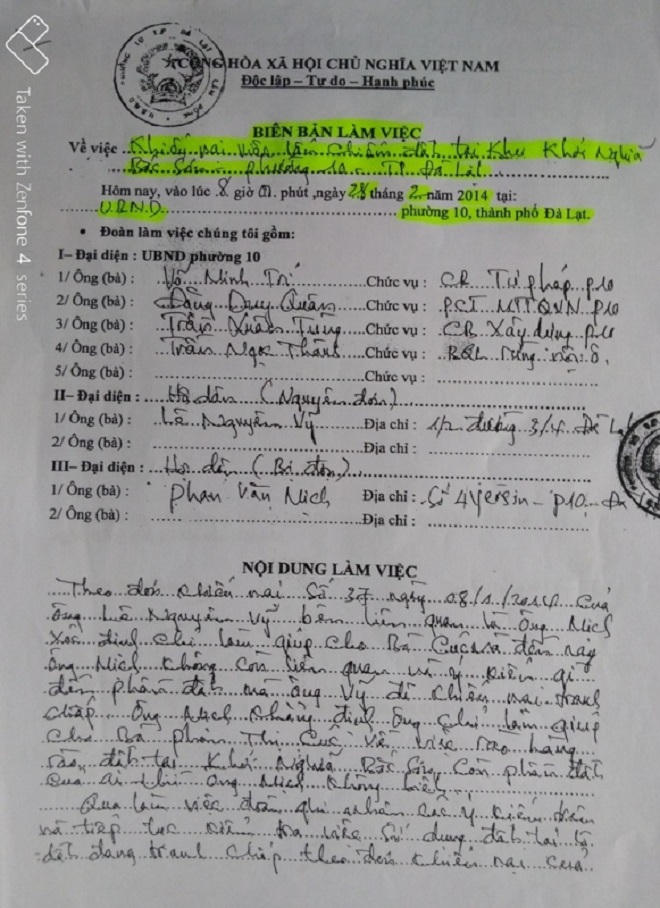 CỘNG HÒA XÃ HỘI CHỦ NGHĨA VIỆT NAM
Độc lập – Tự do – Hạnh phúc
BIÊN BẢN LÀM VIỆC
Về việc Khiếu nại việc lấn chiếm đất tại Khu Khởi Nghĩa
Bắc Sơn phường 10 - TP. Đà Lạt
Hôm nay, vào lúc 8 giờ phút, ngày 28 tháng 2 năm 2014 tại:
UBND phường 10, thành phố Đà Lạt.
• Đoàn làm việc chúng tôi gồm:
I– Đại diện : UBND phường 10
1/ Ông (bà) : Võ Minh Trí Chức vụ : CB Tư pháp p10
2/ Ông (bà) : Đặng Duy Quân Chức vụ : PCT MTTQVN P10
3/ Ông (bà) : Trần Xuân Tùng Chức vụ : CB Xây dựng p10
4/ Ông (bà) : Trần Ngọc Thành Chức vụ : BQL
5/ Ông (bà) : Chức vụ :
II– Đại diện : Hộ dân (Nguyên đơn)
1/ Ông (bà) : Lê Nguyên Vỹ Địa chỉ : 1/2 đường 3/4 Đà Lạt
2/ Ông (bà) : Địa chỉ :
III– Đại diện : Hộ dân (Bị đơn)
1/ Ông (bà) : Phan Văn Mích Địa chỉ : Số 4 Yersin – P10
2/ Ông (bà) : Địa chỉ :
NỘI DUNG LÀM VIỆC
Theo đơn khiếu nại Số 37 ngày 08/1/2014 Của
ông Lê Nguyên Vỹ bên liên quan là ông Mích
Xác định chỉ làm giúp cho Bà đến nay
ông Mích không còn liên quan và ý kiến gì
đến phần đất mà ông Vỹ đã khiếu nại tranh
chấp. Ông Mích khẳng định ông chỉ làm giúp
cho Bà Phan Thị Cúc việc rào hàng
rào đất tại Khởi Nghĩa Bắc Sơn, Còn phần đất
của ai thì ông Mích không biết.
Qua làm việc đoàn ghi nhận các ý kiến trên
và tiếp tục kiểm tra việc sử dụng đất tại lô
đất đang tranh chấp theo đơn khiếu nại của
Taken with Zenfone 4 series